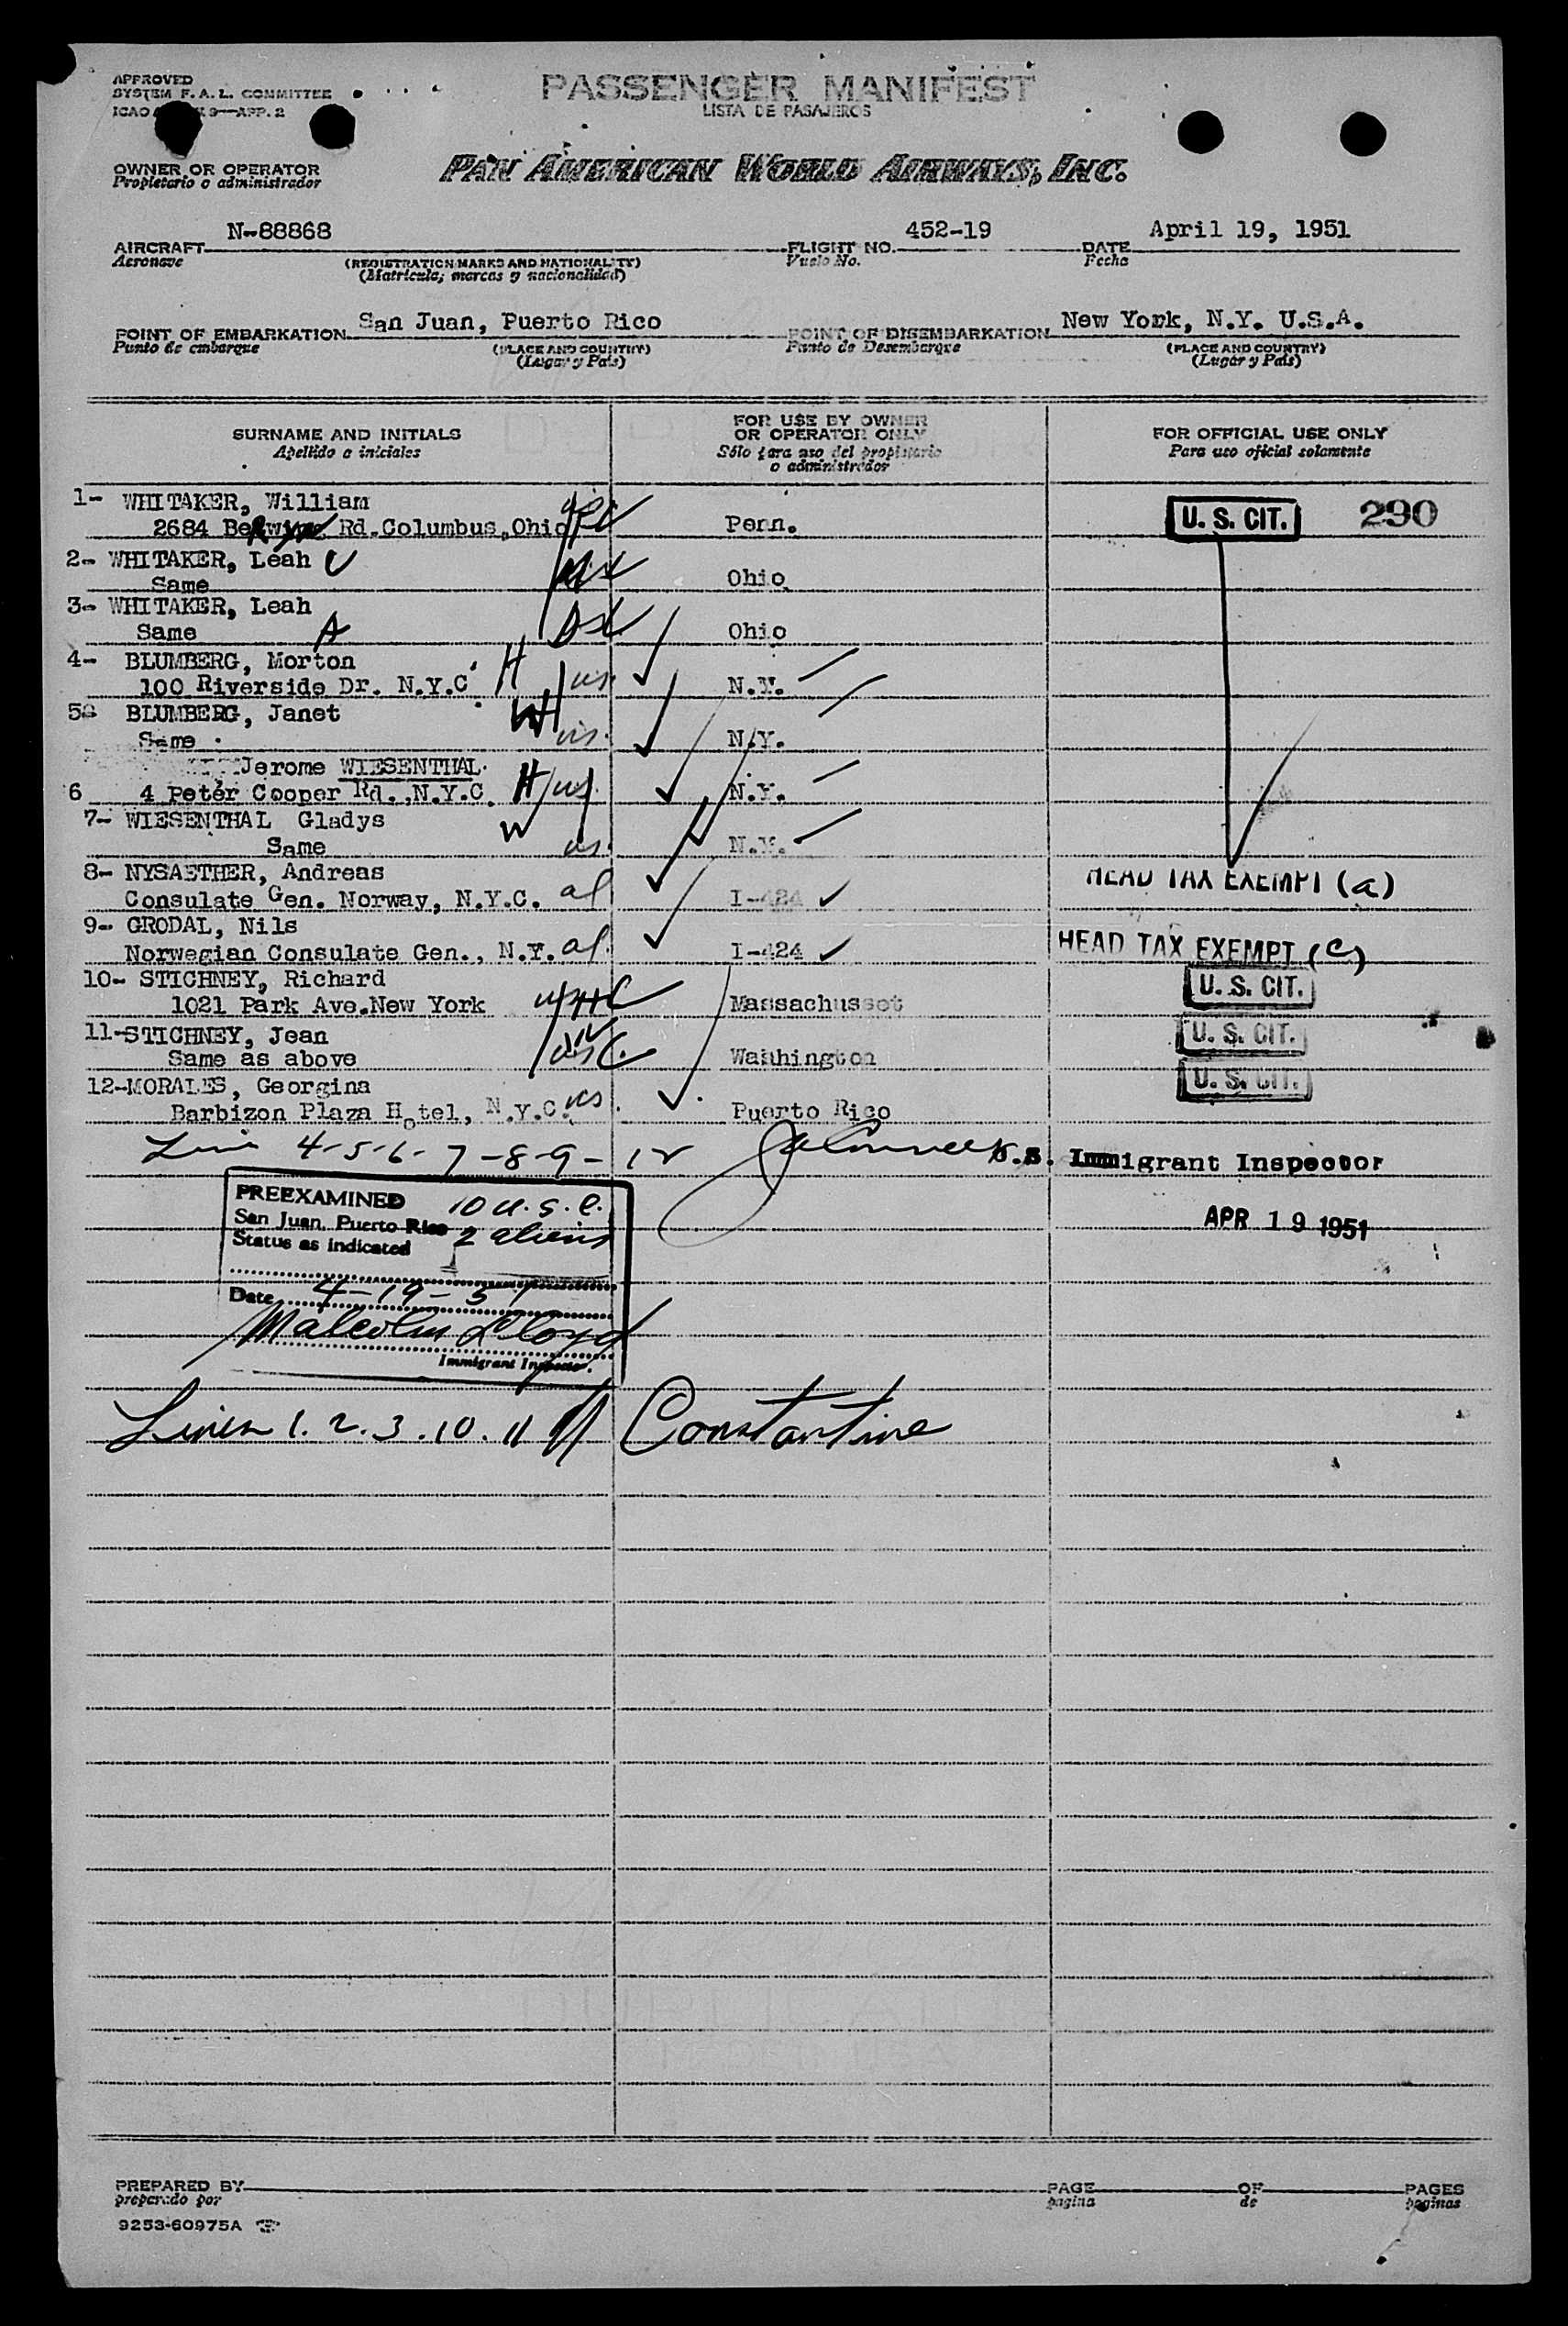 APPROVED
SYSTEM F. A. L. COMMITTEE
ICAO 9—APP. 2
PASSENGER MANIFEST
LISTA DE PASAJEROS
OWNER OR OPERATOR
Propietario o administrador
PAN AMERICAN WORLD AIRWAYS, INC.
AIRCRAFT N-88868 FLIGHT NO. 452-19 DATE April 19, 1951
Aeronave (REGISTRATION MARKS AND NATIONALITY) Vuelo No. Fecha
(Matricula, marcas y nacionalidad)
POINT OF EMBARKATION San Juan, Puerto Rico POINT OF DISEMBARKATION New York, N.Y. U.S.A.
Punto de embarque (PLACE AND COUNTRY) Punto de Desembarque (PLACE AND COUNTRY)
(Lugar y País) (Lugar y País)
SURNAME AND INITIALS FOR USE BY OWNER OR OPERATOR ONLY FOR OFFICIAL USE ONLY
Apellido e iniciales Sólo para uso del propietario o administrador Para uso oficial solamente
1- WHITAKER, William U. S. CIT. 290
2684 Rd. Columbus, Ohio Penn.
2- WHITAKER, Leah
Same Ohio
3- WHITAKER, Leah
Same A Ohio
4- BLUMBERG, Morton H
100 Riverside Dr. N.Y.C us. N.Y.
5 BLUMBERG, Janet W
Same us. N.Y.
Jerome WIESENTHAL
6 4 Peter Cooper Rd., N.Y.C. H us. N.Y.
7- WIESENTHAL Gladys W
Same us. N.Y.
8- NYSAETHER, Andreas HEAD TAX EXEMPT (a)
Consulate Gen. Norway, N.Y.C. al I-424
9- GRODAL, Nils
Norwegian Consulate Gen., N.Y. al. I-424 HEAD TAX EXEMPT (c)
10- STICHNEY, Richard U. S. CIT.
1021 Park Ave. New York Massachusset
11-STICHNEY, Jean U. S. CIT.
Same as above Wahhington
12-MORALES, Georgina U. S. CIT.
Barbizon Plaza Hotel, N.Y.C. us. Puerto Rico
4-5-6-7-8-9-12 U.S. Immigrant Inspector
PREEXAMINED 10 U.S.C.
San Juan, Puerto Rico
Status as indicated 2 aliens
APR 19 1951
Date 4-19-51
Malcolm Lloyd
Immigrant Inspector.
Lines 1.2.3.10.11 Constantine
PREPARED BY PAGE OF PAGES
preparado por pagina de paginas
9253-60975A